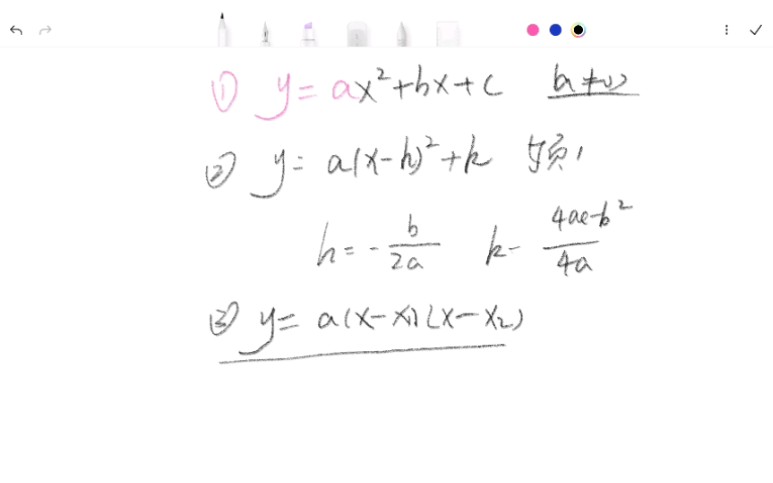 ① y=ax²+bx+c a≠0
② y=a(x-h)²+k 顶,
h=-b/2a k-4ac-b²/4a
③ y=a(x-x1)(x-x2)